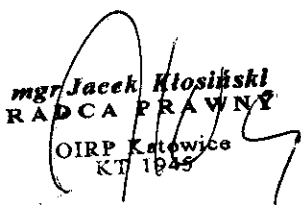 mgr Jacek Kłosiński
RADCA PRAWNY
OIRP Katowice
KT 1945